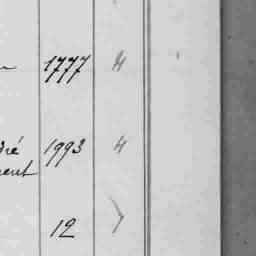 1777 4
dré 1993 4
ment
12